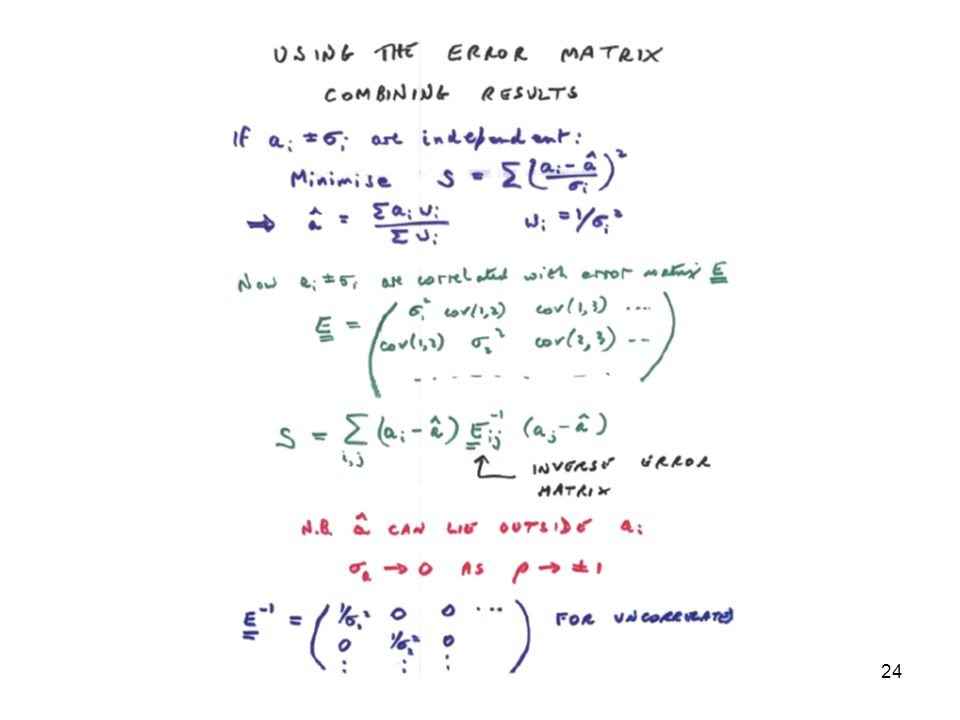 USING THE ERROR MATRIX
COMBINING RESULTS
If aᵢ ± σᵢ are independent:
Minimise S = Σ((aᵢ - â)/σᵢ)²
⇒ â = Σaᵢwᵢ / Σwᵢ wᵢ = 1/σᵢ²
Now aᵢ ± σᵢ are correlated with error matrix E
E = ( σ₁² cov(1,2) cov(1,3) ....
cov(1,2) σ₂² cov(2,3) --
. - . - . . . . . . )
S = Σ i,j (aᵢ - â) E⁻¹ᵢⱼ (aⱼ - â)
INVERSE ERROR
MATRIX
N.B. â CAN LIE OUTSIDE aᵢ
σₐ → 0 AS ρ → ±1
E⁻¹ = ( 1/σ₁² 0 0 ... FOR UNCORRELATED
0 1/σ₂² 0
⋮ ⋮ ⋮ )
24